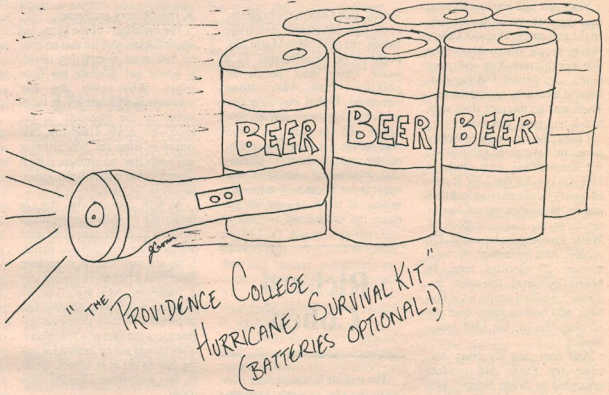 BEER BEER BEER
"THE PROVIDENCE COLLEGE
HURRICANE SURVIVAL KIT"
(BATTERIES OPTIONAL!)